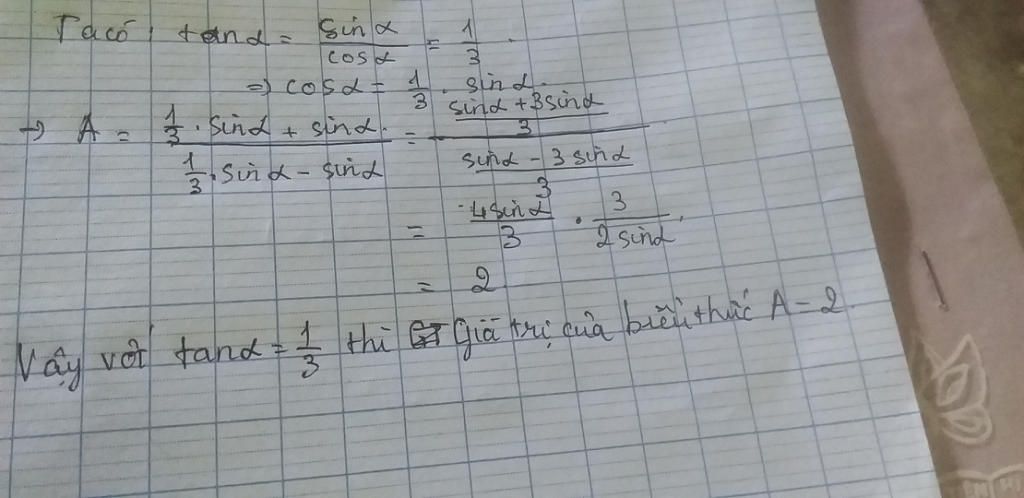 Ta có: tanα = sinα/cosα = 1/3.
⇒ cosα = 1/3 . sinα.
→ A = (1/3 . sinα + sinα)/(1/3 . sinα - sinα) = ((sinα + 3sinα)/3)/((sinα - 3sinα)/3)
= 4sinα/3 . 3/2sinα.
= 2
Vậy với tanα = 1/3 thì giá trị của biểu thức A = 2.